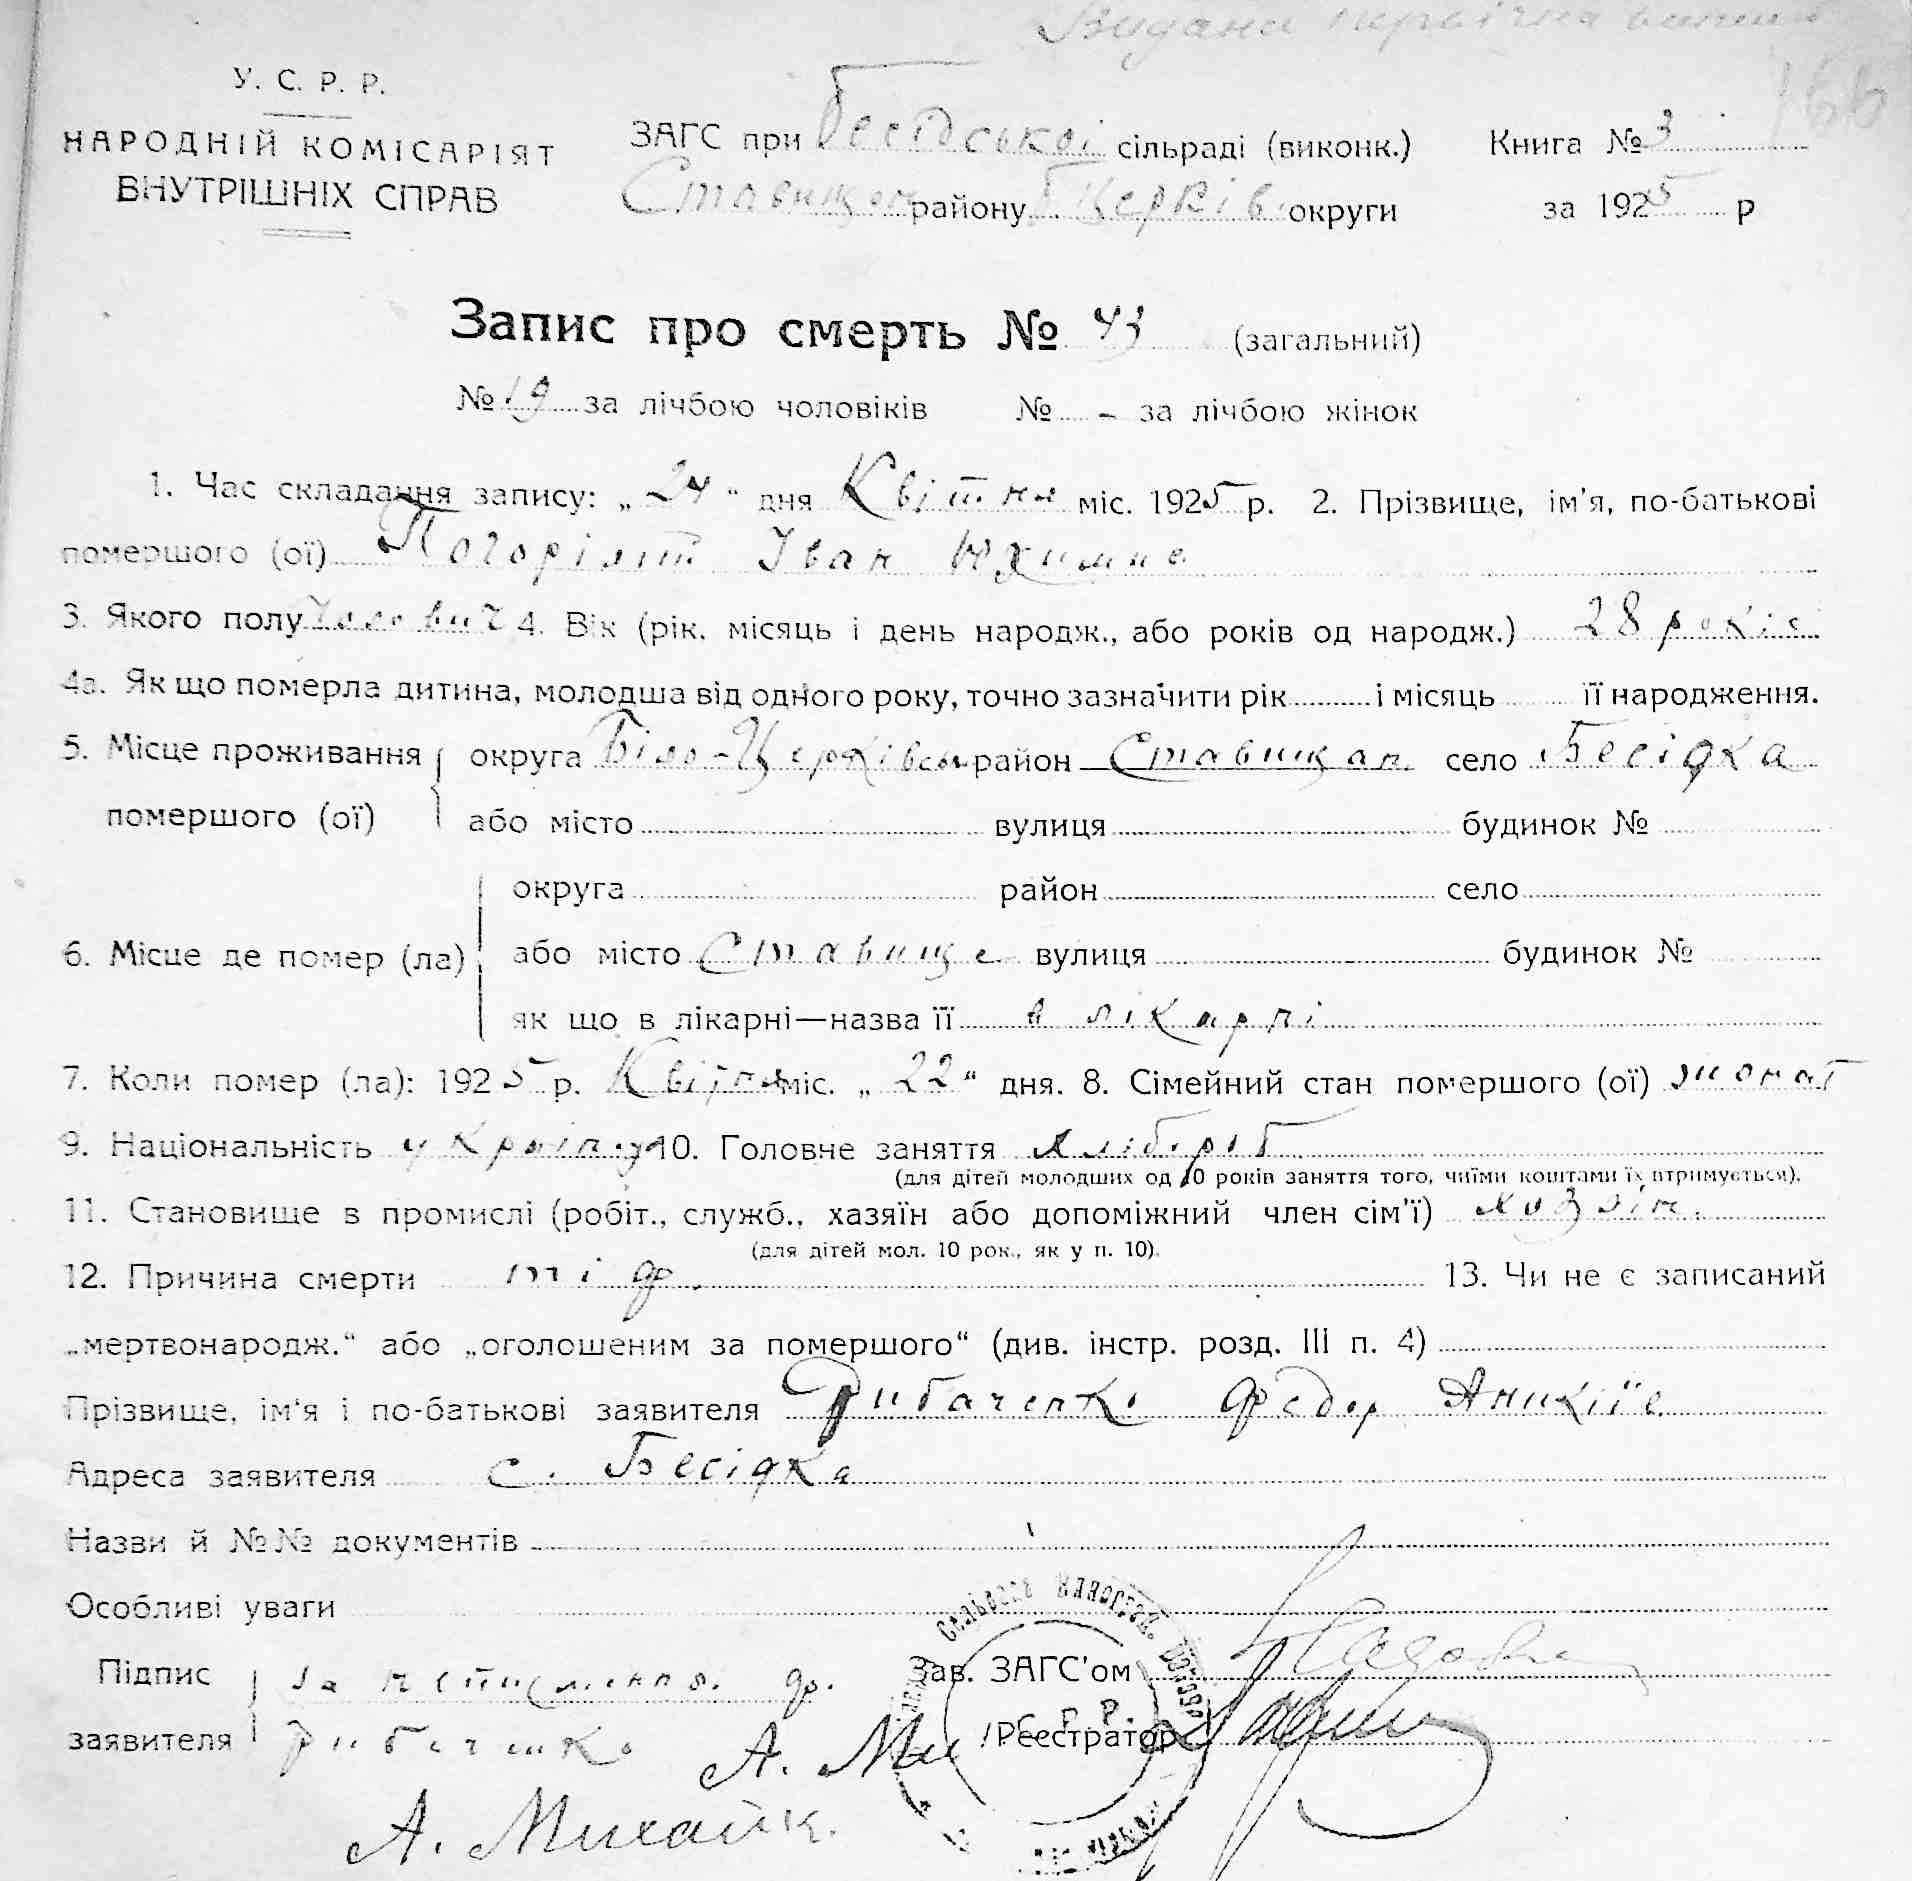 Видана
У. С. Р. Р.
НАРОДНІЙ КОМІСАРІЯТ
ВНУТРІШНІХ СПРАВ
ЗАГС при Бесідської сільраді (виконк.) Книга № 3
Ставищан району Б Церків. округи за 1925 р
Запис про смерть № 43 (загальний)
№ 19 за лічбою чоловіків № - за лічбою жінок
1. Час складання запису: „24“ дня Квітня міс. 1925 р. 2. Прізвище, ім'я, по-батькові
помершого (ої) Погоріліт Іван Юхимов.
3. Якого полу чолович 4. Вік (рік. місяць і день народж., або років од народж.) 28 років
4а. Як що померла дитина, молодша від одного року, точно зазначити рік і місяць її народження.
5. Місце проживання помершого (ої) округа Біло-Церківськ район Ставищан село Бесідка
або місто вулиця будинок №
6. Місце де помер (ла) округа район село
або місто Ставище вулиця будинок №
як що в лікарні—назва її в лікарні
7. Коли помер (ла): 1925 р. Квітня міс. „22“ дня. 8. Сімейний стан помершого (ої) жонат
9. Національність українц 10. Головне заняття хлібороб
(для дітей молодших од 10 років заняття того, чиїми коштами їх втримується).
11. Становище в промислі (робіт., служб., хазяїн або допоміжний член сім'ї) хозяін.
(для дітей мол. 10 рок., як у п. 10).
12. Причина смерти тіф. 13. Чи не є записаний
„мертвонародж.“ або „оголошеним за помершого“ (див. інстр. розд. III п. 4)
Прізвище, ім'я і по-батькові заявителя Рибаченко Федор Аникіїв
Адреса заявителя с. Бесідка
Назви й №№ документів
Особливі уваги
Підпис заявителя за неписьменного ф.
Рибаченко А. Ми
А. Михайк.
Зав. ЗАГС'ом
Реєстратор